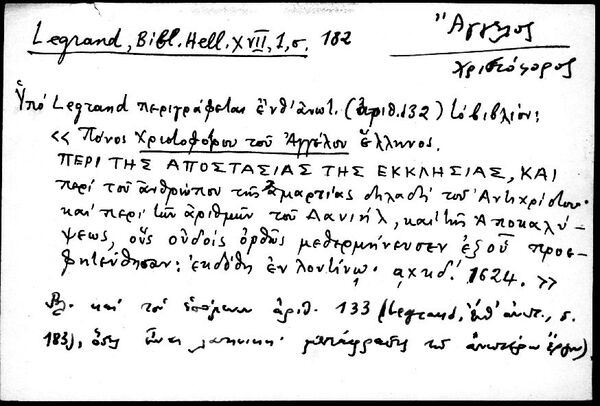 Legrand, Bibl. Hell. XVII, 1, σ. 182
Ἄγγελος
Χριστόφορος
Ὑπό Legrand περιγράφεται ἔνθ' ἀνωτ. (ἀριθ. 132) τό βιβλίον:
« Πόνος Χριστοφόρου τοῦ Ἀγγέλου ἕλληνος.
ΠΕΡΙ ΤΗΣ ΑΠΟΣΤΑΣΙΑΣ ΤΗΣ ΕΚΚΛΗΣΙΑΣ, ΚΑΙ
περί τοῦ ἀνθρώπου τῆς ἁμαρτίας δηλαδή τοῦ Ἀντιχρίστου·
καί περί τῶν ἀριθμῶν τοῦ Δανιήλ, καί τῆς Ἀποκαλύ-
ψεως, οὓς οὐδείς ὀρθῶς μεθερμήνευσεν ἐξ οὗ προε-
φητεύθησαν: ἐκδόθη ἐν λοντίνῳ. αχκδ΄. 1624. »
Βλ. καί τόν ἑπόμενον ἀριθ. 133 (Legrand, ἔνθ' ἀνωτ., σ.
183), ὅστις εἶναι λατινική μετάφρασις τοῦ ἀνωτέρω ἔργου)